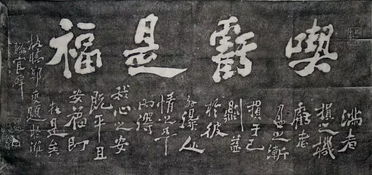 喫虧是福
滿者
損之機
虧者
盈之漸
損于己
則益
於彼
外得
人
情之平
內得
我心之安
既平且
安福即
在是矣